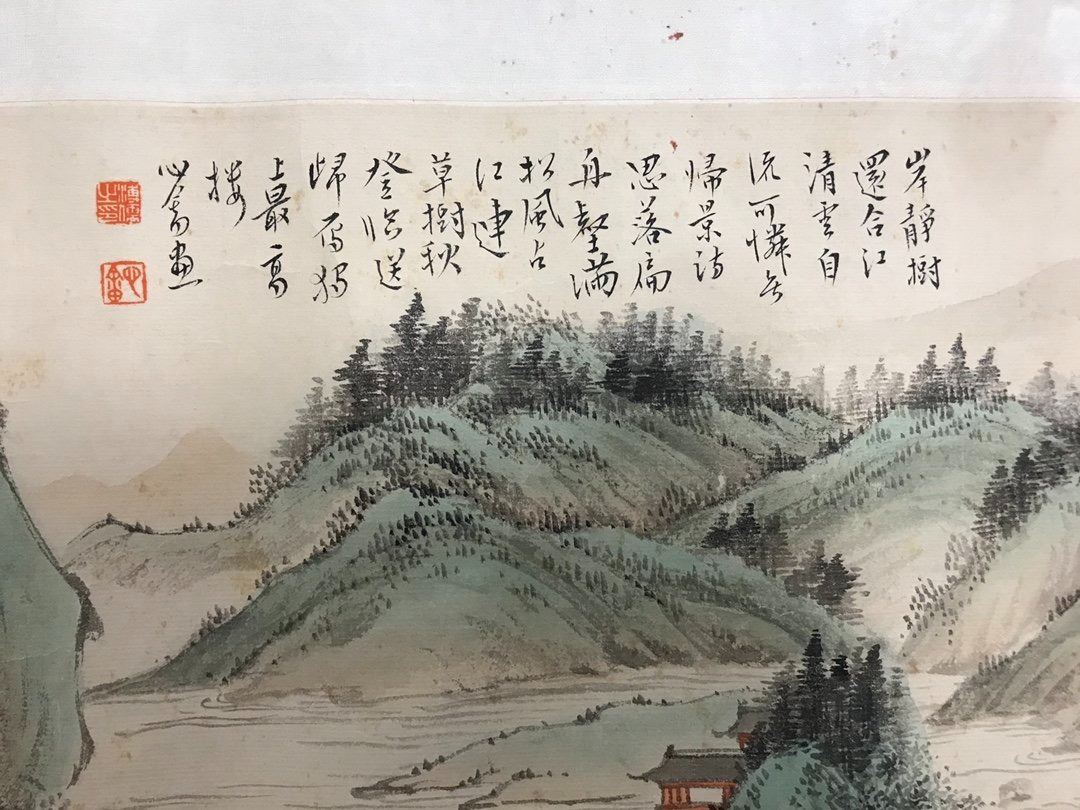 岸靜樹
還合江
清雲自
流可憐無
帰景詩
思落扁
舟壑滿
松風古
江連
草樹秋
登臨送
歸雁獨
上最高
樓
心畬畫
溥儒之印
心畬